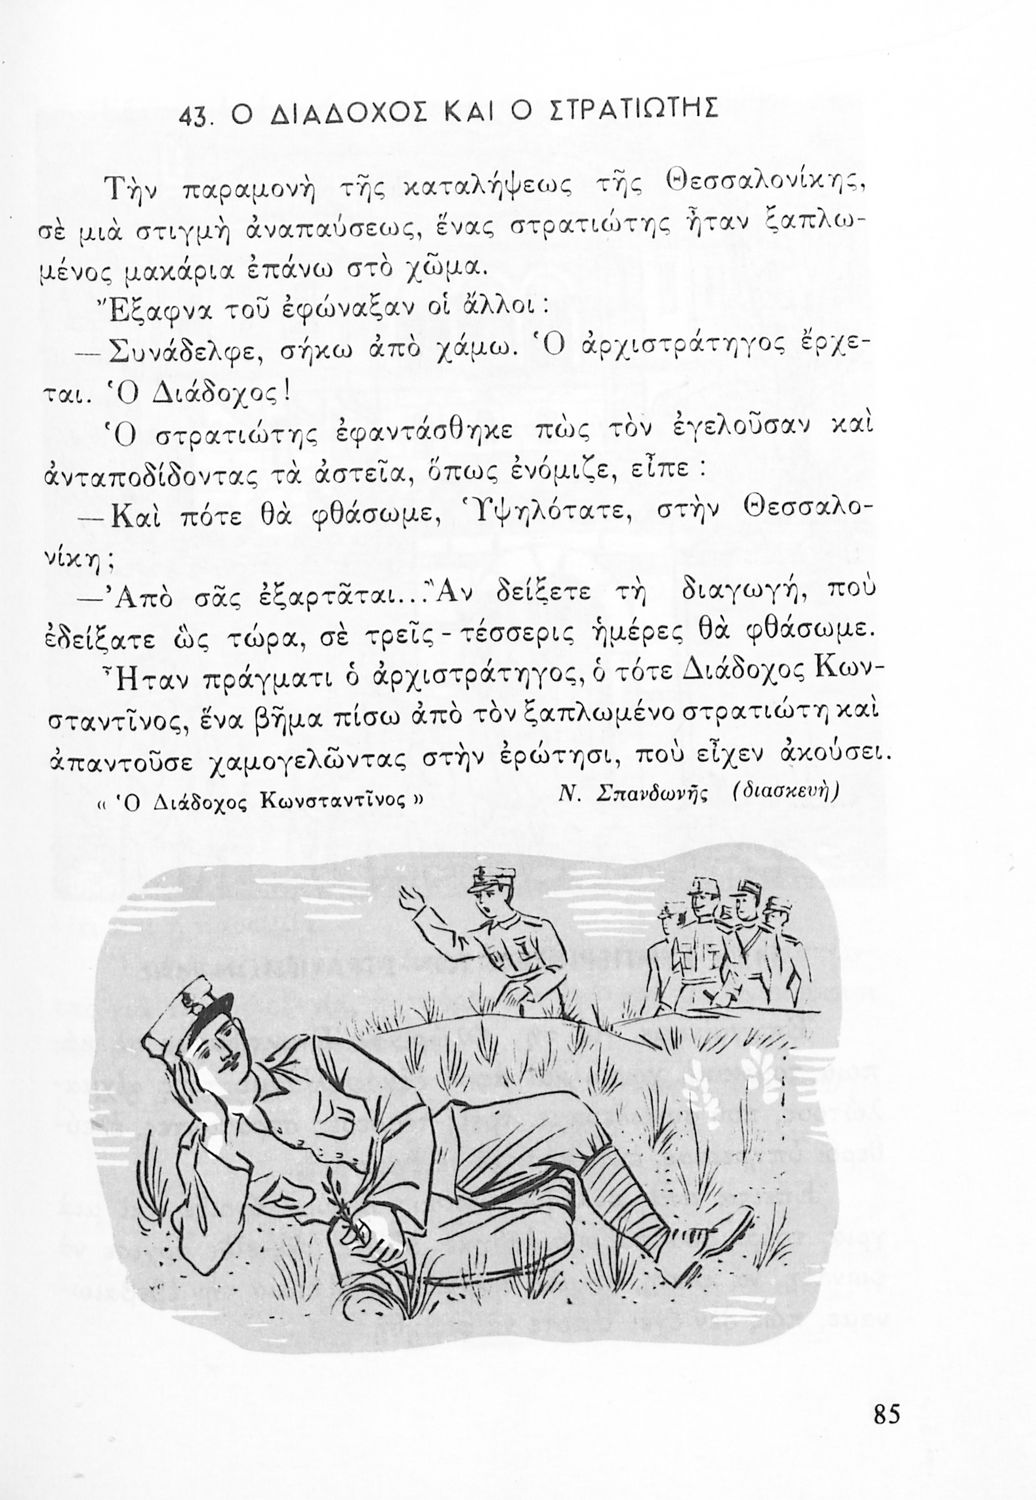 43. Ο ΔΙΑΔΟΧΟΣ ΚΑΙ Ο ΣΤΡΑΤΙΩΤΗΣ
Τὴν παραμονὴ τῆς καταλήψεως τῆς Θεσσαλονίκης,
σὲ μιὰ στιγμὴ ἀναπαύσεως, ἕνας στρατιώτης ἦταν ξαπλω-
μένος μακάρια ἐπάνω στὸ χῶμα.
Ἔξαφνα τοῦ ἐφώναξαν οἱ ἄλλοι :
— Συνάδελφε, σήκω ἀπὸ χάμω. Ὁ ἀρχιστράτηγος ἔρχε-
ται. Ὁ Διάδοχος!
Ὁ στρατιώτης ἐφαντάσθηκε πὼς τὸν ἐγελοῦσαν καὶ
ἀνταποδίδοντας τὰ ἀστεῖα, ὅπως ἐνόμιζε, εἶπε :
— Καὶ πότε θὰ φθάσωμε, Ὑψηλότατε, στὴν Θεσσαλο-
νίκη ;
— Ἀπὸ σᾶς ἐξαρτᾶται... Ἂν δείξετε τὴ διαγωγή, ποὺ
ἐδείξατε ὣς τώρα, σὲ τρεῖς - τέσσερις ἡμέρες θὰ φθάσωμε.
Ἦταν πράγματι ὁ ἀρχιστράτηγος, ὁ τότε Διάδοχος Κων-
σταντῖνος, ἕνα βῆμα πίσω ἀπὸ τὸν ξαπλωμένο στρατιώτη καὶ
ἀπαντοῦσε χαμογελῶντας στὴν ἐρώτησι, ποὺ εἶχεν ἀκούσει.
« Ὁ Διάδοχος Κωνσταντῖνος » Ν. Σπανδωνῆς (διασκευὴ)
85